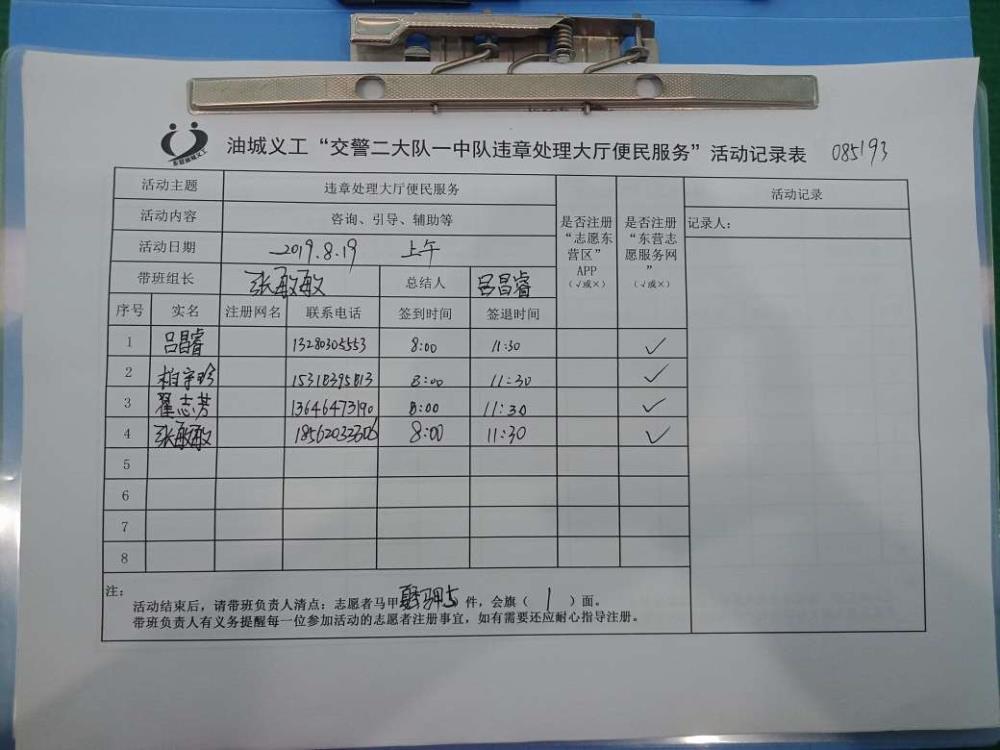 东营油城义工
油城义工“交警二大队一中队违章处理大厅便民服务”活动记录表 085193
活动主题 违章处理大厅便民服务
活动内容 咨询、引导、辅助等
活动日期 2019.8.19 上午
带班组长 张敏敏 总结人 吕昌睿
是否注册“志愿东营区”APP（√或×）
是否注册“东营志愿服务网”（√或×）
活动记录
记录人：
序号 实名 注册网名 联系电话 签到时间 签退时间
1 吕昌睿 13280305553 8:00 11:30 ✓
2 柏宇珍 15318395813 8:00 11:30 ✓
3 翟志芳 13646473190 8:00 11:30 ✓
4 张敏敏 18562033606 8:00 11:30 ✓
5
6
7
8
注：
活动结束后，请带班负责人清点：志愿者马甲 5 件，会旗（ 1 ）面。
带班负责人有义务提醒每一位参加活动的志愿者注册事宜，如有需要还应耐心指导注册。